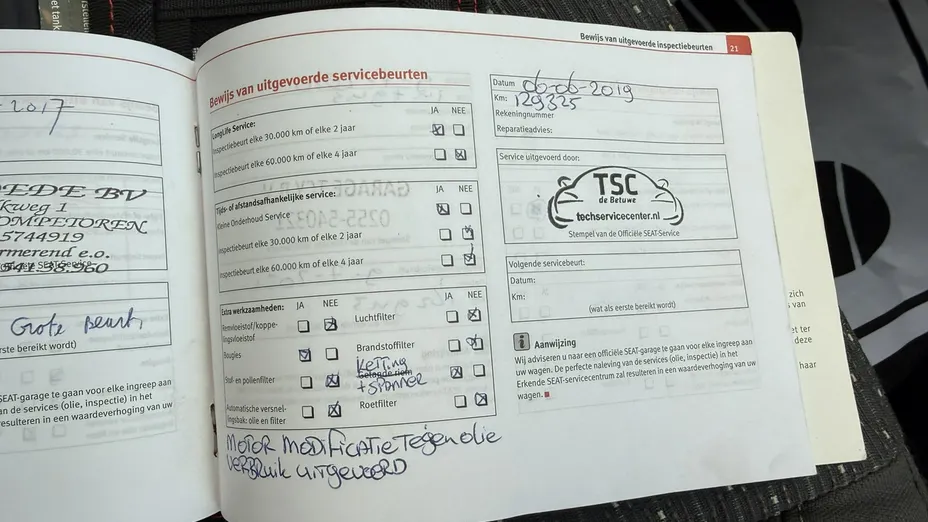 -2017
EDE BV
kweg 1
OMPETOREN
5744919
rmerend e.o.
541 38.960
Grote Beurt,
erste bereikt wordt)
SEAT-garage te gaan voor elke ingreep aan
an de services (olie, inspectie) in het
resulteren in een waardeverhoging van uw
Bewijs van uitgevoerde inspectiebeurten 21
Bewijs van uitgevoerde servicebeurten
JA NEE
LongLife Service:
Inspectiebeurt elke 30.000 km of elke 2 jaar
Inspectiebeurt elke 60.000 km of elke 4 jaar
JA NEE
Tijds- of afstandsafhankelijke service:
Kleine Onderhoud Service
Inspectiebeurt elke 30.000 km of elke 2 jaar
Inspectiebeurt elke 60.000 km of elke 4 jaar
Extra werkzaamheden: JA NEE JA NEE
Remvloeistof/koppe-
lingsvloeistof
Luchtfilter
Bougies
Brandstoffilter
Stof- en pollenfilter
Ketting
+ spanner
Automatische versnel-
lingsbak: olie en filter
Roetfilter
MOTOR MODIFICATIE Tegen olie
VERBRUIK UITGEVOERD
Datum 06-06-2019
Km: 129325
Rekeningnummer
Reparatieadvies:
Service uitgevoerd door:
TSC
de Betuwe
techservicecenter.nl
Stempel van de Officiële SEAT-Service
Volgende servicebeurt:
Datum:
Km:
(wat als eerste bereikt wordt)
i Aanwijzing
Wij adviseren u naar een officiële SEAT-garage te gaan voor elke ingreep aan
uw wagen. De perfecte naleving van de services (olie, inspectie) in het
Erkende SEAT-servicecentrum zal resulteren in een waardeverhoging van uw
wagen.
zich
s van
et ter
deze
haar